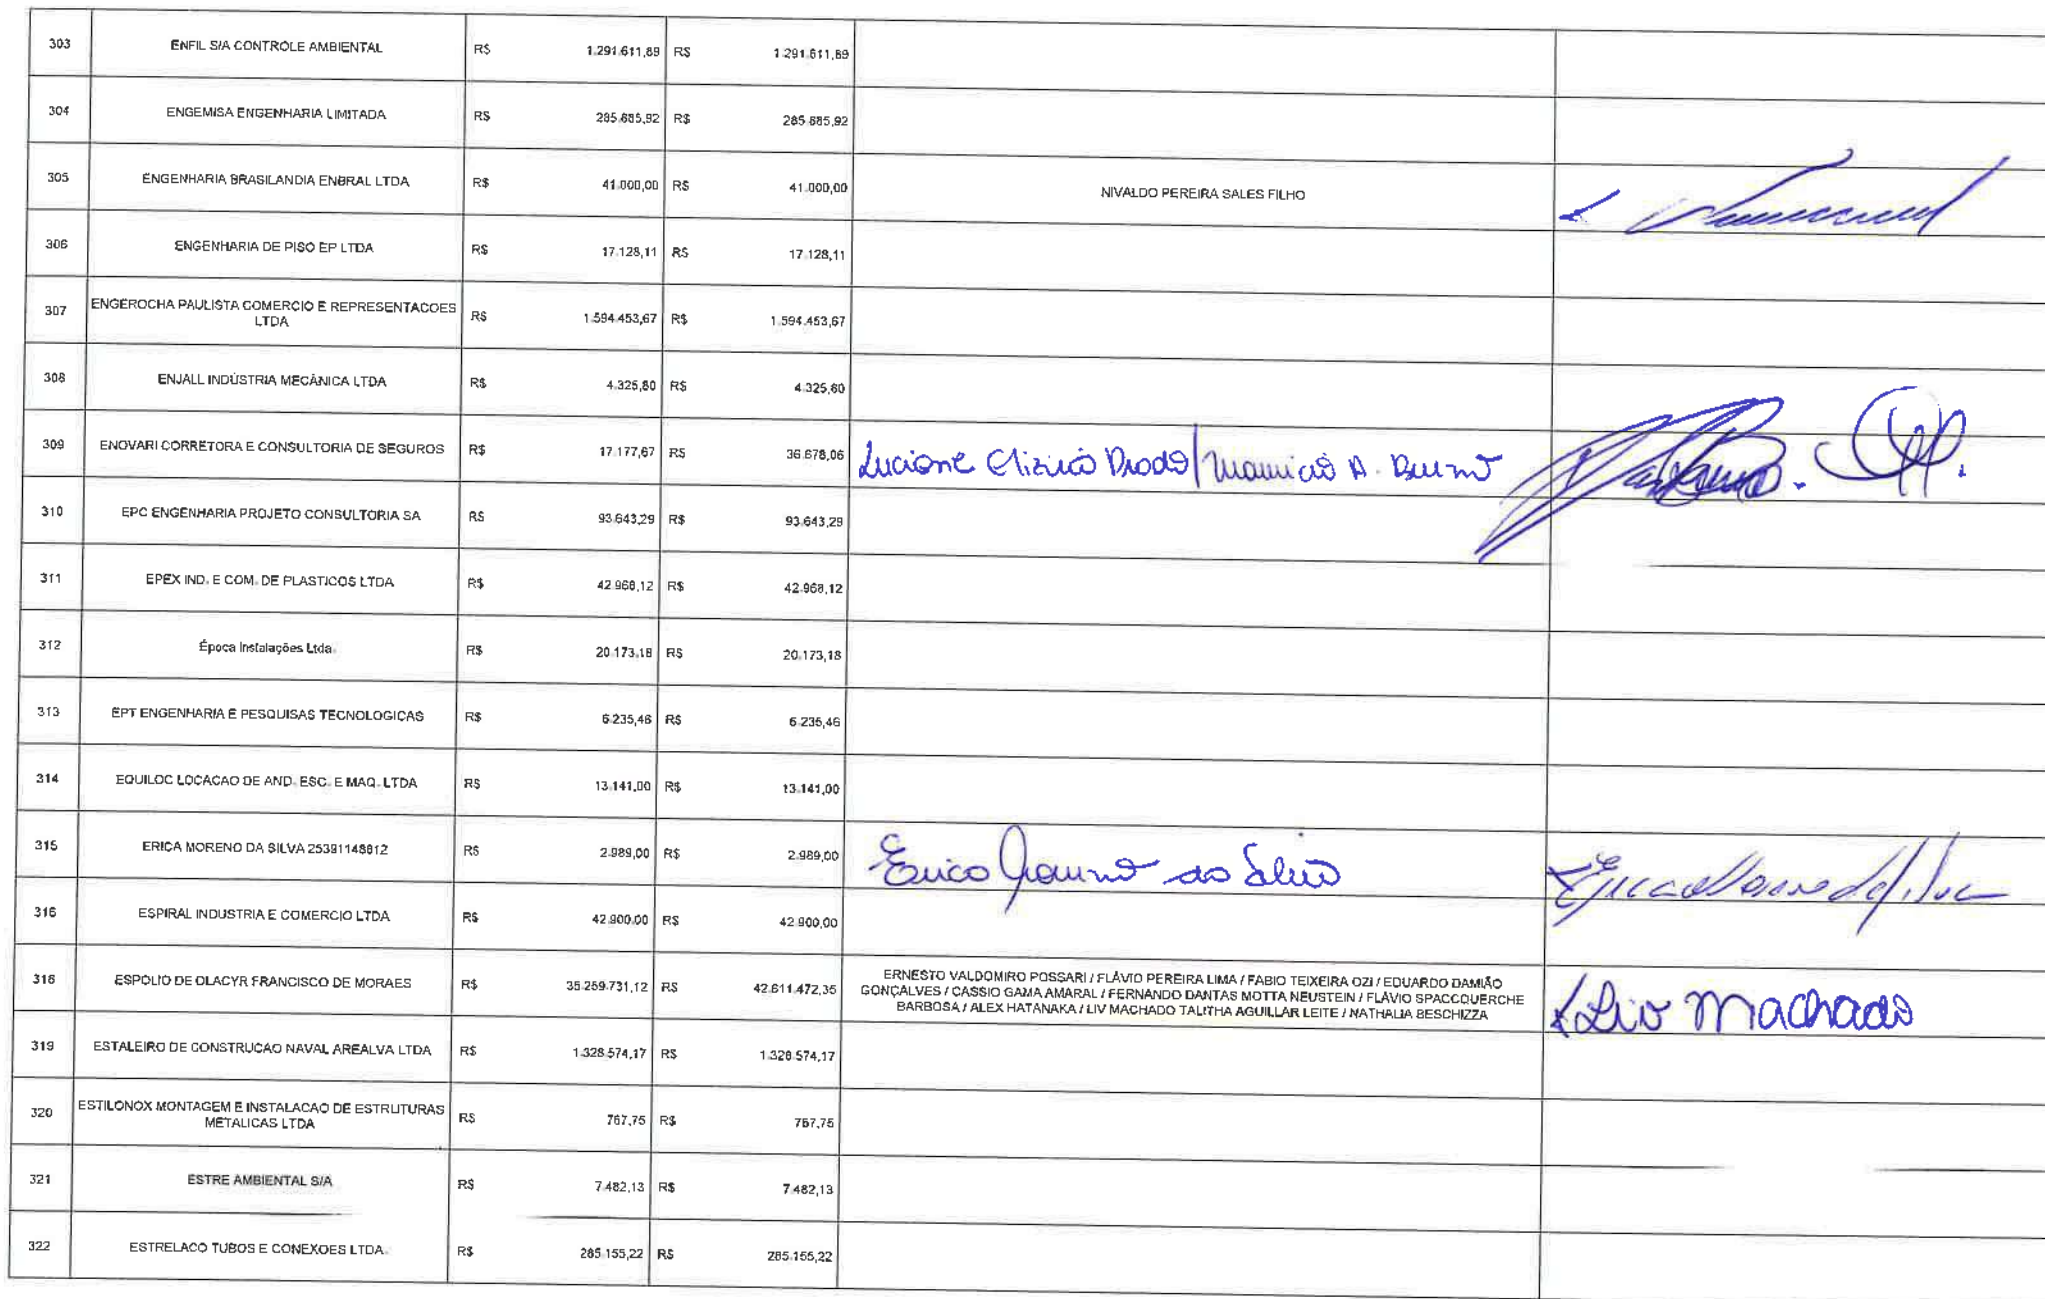 303 ENFIL S/A CONTROLE AMBIENTAL R$ 1.291.611,89 R$ 1.291.611,89
304 ENGEMISA ENGENHARIA LIMITADA R$ 285.685,92 R$ 285.685,92
305 ENGENHARIA BRASILANDIA ENBRAL LTDA R$ 41.000,00 R$ 41.000,00 NIVALDO PEREIRA SALES FILHO
306 ENGENHARIA DE PISO EP LTDA R$ 17.128,11 R$ 17.128,11
307 ENGEROCHA PAULISTA COMERCIO E REPRESENTACOES
LTDA R$ 1.594.453,67 R$ 1.594.453,67
308 ENJALL INDÚSTRIA MECÂNICA LTDA R$ 4.325,60 R$ 4.325,60
309 ENOVARI CORRETORA E CONSULTORIA DE SEGUROS R$ 17.177,67 R$ 36.678,06 Luciane / Mauricio A. Bueno
310 EPC ENGENHARIA PROJETO CONSULTORIA SA R$ 93.643,29 R$ 93.643,29
311 EPEX IND. E COM. DE PLASTICOS LTDA R$ 42.968,12 R$ 42.968,12
312 Época Instalações Ltda. R$ 20.173,18 R$ 20.173,18
313 EPT ENGENHARIA E PESQUISAS TECNOLOGICAS R$ 6.235,46 R$ 6.235,46
314 EQUILOC LOCACAO DE AND. ESC. E MAQ. LTDA R$ 13.141,00 R$ 13.141,00
315 ERICA MORENO DA SILVA 25391148812 R$ 2.989,00 R$ 2.989,00 Erica Moreno da Silva
316 ESPIRAL INDUSTRIA E COMERCIO LTDA R$ 42.900,00 R$ 42.900,00
318 ESPÓLIO DE OLACYR FRANCISCO DE MORAES R$ 35.259.731,12 R$ 42.611.472,35 ERNESTO VALDOMIRO POSSARI / FLÁVIO PEREIRA LIMA / FABIO TEIXEIRA OZI / EDUARDO DAMIÃO
GONÇALVES / CASSIO GAMA AMARAL / FERNANDO DANTAS MOTTA NEUSTEIN / FLÁVIO SPACCQUERCHE
BARBOSA / ALEX HATANAKA / LIV MACHADO TALITHA AGUILLAR LEITE / NATHALIA BESCHIZZA
Liv Machado
319 ESTALEIRO DE CONSTRUCAO NAVAL AREALVA LTDA R$ 1.328.574,17 R$ 1.328.574,17
320 ESTILONOX MONTAGEM E INSTALACAO DE ESTRUTURAS
METALICAS LTDA R$ 767,75 R$ 767,75
321 ESTRE AMBIENTAL S/A R$ 7.482,13 R$ 7.482,13
322 ESTRELACO TUBOS E CONEXOES LTDA. R$ 285.155,22 R$ 285.155,22